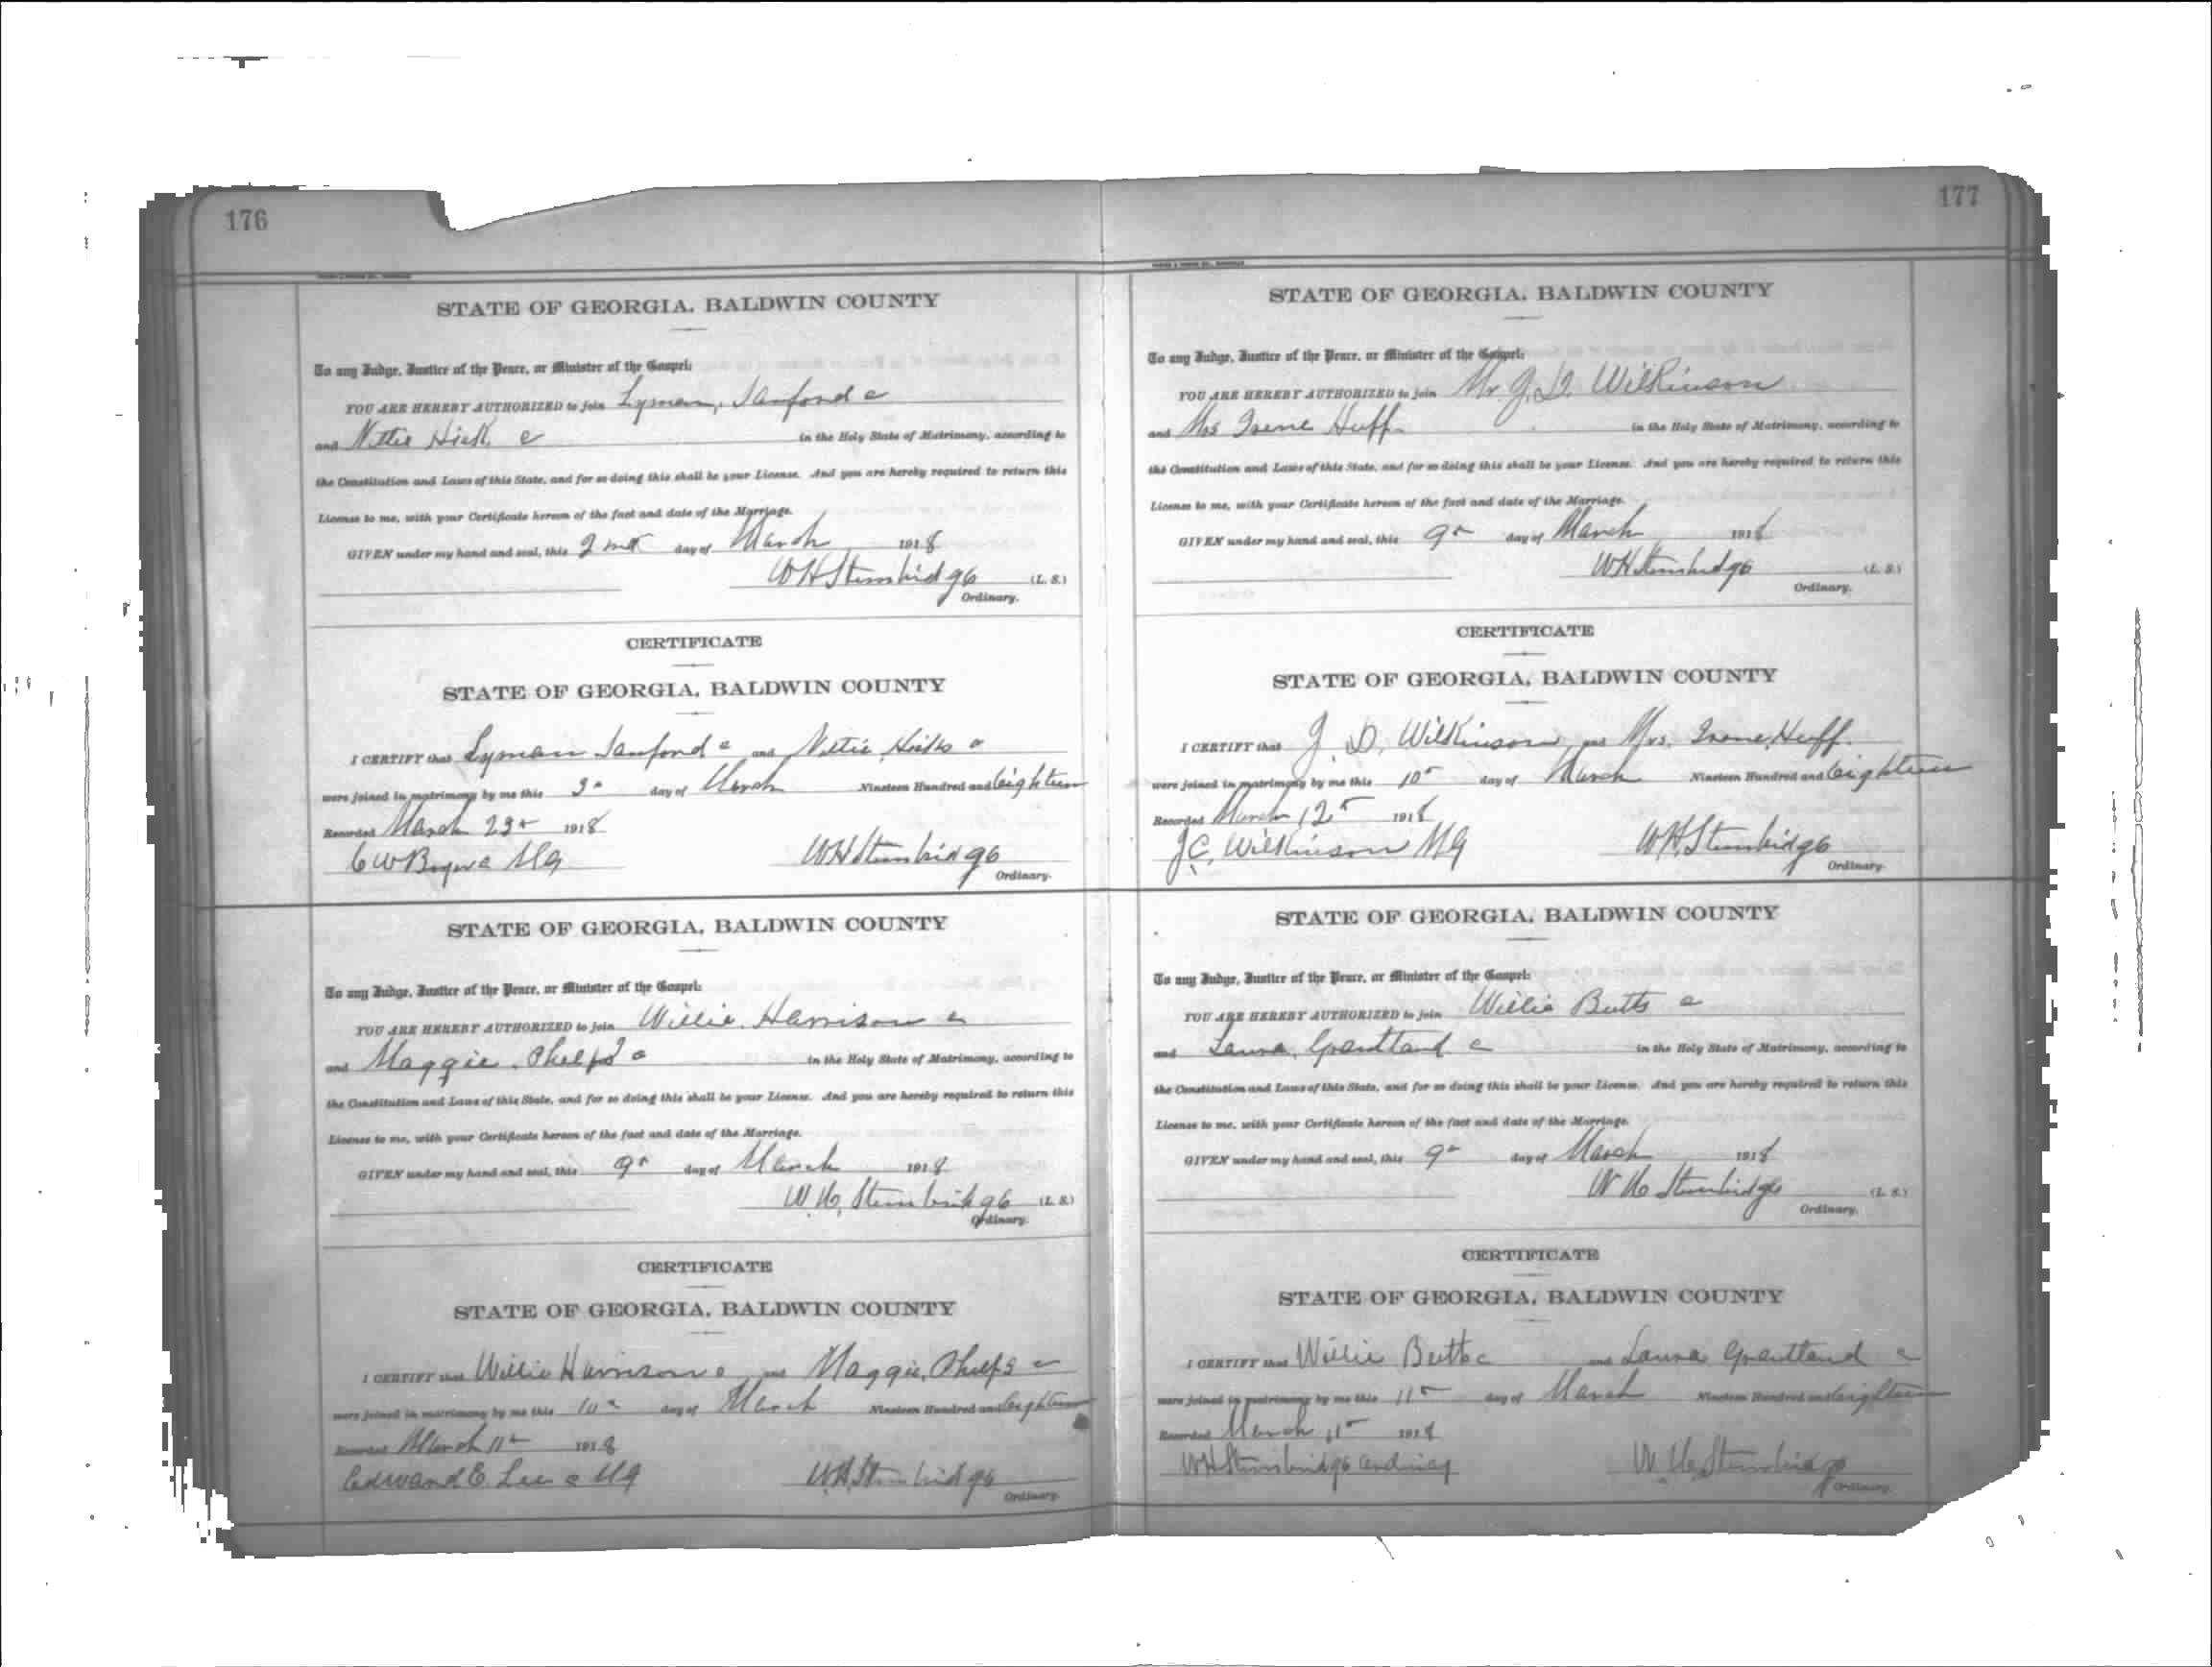 176
STATE OF GEORGIA, BALDWIN COUNTY
To any Judge, Justice of the Peace, or Minister of the Gospel:
YOU ARE HEREBY AUTHORIZED to join Lyman, Sanford c
and Nettie c in the Holy State of Matrimony, according to
the Constitution and Laws of this State, and for so doing this shall be your License. And you are hereby required to return this
License to me, with your Certificate hereon of the fact and date of the Marriage.
GIVEN under my hand and seal, this day of March 1918
WH Stembridge (L. S.)
Ordinary.
CERTIFICATE
STATE OF GEORGIA, BALDWIN COUNTY
I CERTIFY that Lyman Sanford c and Nettie c
were joined in matrimony by me this 3 day of March Nineteen Hundred and Eighteen
Recorded March 23 1918
C W M G WH Stembridge
Ordinary.
STATE OF GEORGIA, BALDWIN COUNTY
To any Judge, Justice of the Peace, or Minister of the Gospel:
YOU ARE HEREBY AUTHORIZED to join Willie Harrison c
and Maggie Phelps c in the Holy State of Matrimony, according to
the Constitution and Laws of this State, and for so doing this shall be your License. And you are hereby required to return this
License to me, with your Certificate hereon of the fact and date of the Marriage.
GIVEN under my hand and seal, this 9 day of March 1918
W. H. Stembridge (L. S.)
Ordinary.
CERTIFICATE
STATE OF GEORGIA, BALDWIN COUNTY
I CERTIFY that Willie Harrison c and Maggie Phelps c
were joined in matrimony by me this 10 day of March Nineteen Hundred and Eighteen
Recorded March 11 1918
Edward E. Lee c M G WH Stembridge
Ordinary.
177
STATE OF GEORGIA, BALDWIN COUNTY
To any Judge, Justice of the Peace, or Minister of the Gospel:
YOU ARE HEREBY AUTHORIZED to join Mr. J. D. Wilkinson
and Mrs Irene Huff in the Holy State of Matrimony, according to
the Constitution and Laws of this State, and for so doing this shall be your License. And you are hereby required to return this
License to me, with your Certificate hereon of the fact and date of the Marriage.
GIVEN under my hand and seal, this 9 day of March 1918
WH Stembridge (L. S.)
Ordinary.
CERTIFICATE
STATE OF GEORGIA, BALDWIN COUNTY
I CERTIFY that J. D. Wilkinson and Mrs. Irene Huff
were joined in matrimony by me this 10 day of March Nineteen Hundred and Eighteen
Recorded March 12 1918
J.C. Wilkinson M G WH Stembridge
Ordinary.
STATE OF GEORGIA, BALDWIN COUNTY
To any Judge, Justice of the Peace, or Minister of the Gospel:
YOU ARE HEREBY AUTHORIZED to join Willie Butts c
and Laura Grantland c in the Holy State of Matrimony, according to
the Constitution and Laws of this State, and for so doing this shall be your License. And you are hereby required to return this
License to me, with your Certificate hereon of the fact and date of the Marriage.
GIVEN under my hand and seal, this 9 day of March 1918
W H Stembridge (L. S.)
Ordinary.
CERTIFICATE
STATE OF GEORGIA, BALDWIN COUNTY
I CERTIFY that Willie Butts c and Laura Grantland c
were joined in matrimony by me this 11 day of March Nineteen Hundred and Eighteen
Recorded March 11 1918
WH Stembridge Ordinary W. H. Stembridge
Ordinary.